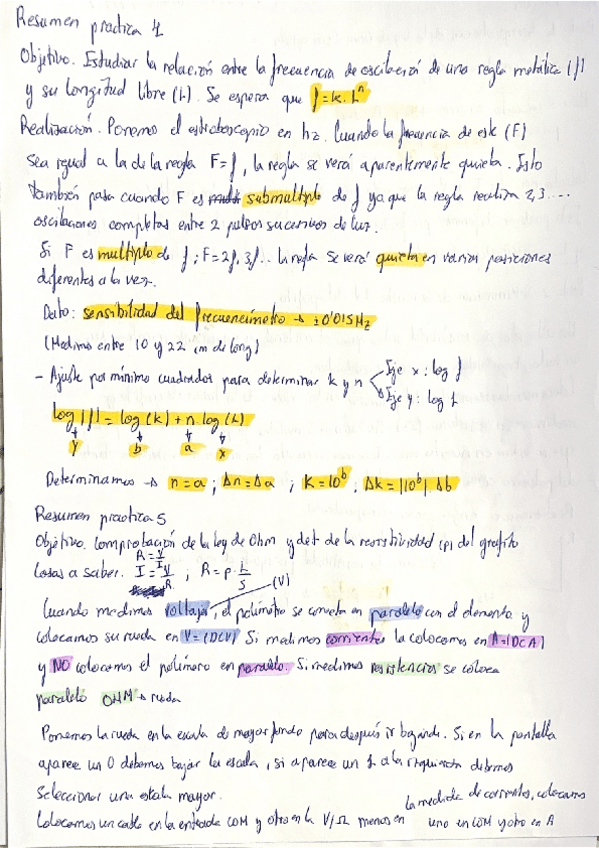 Resumen practica 4
Objetivo. Estudiar la relación entre la frecuencia de oscilación de una regla metálica (f)
y su longitud libre (L). Se espera que f = k·Lⁿ
Realización. Ponemos el estroboscopio en hz. Cuando la frecuencia de este (F)
sea igual a la de la regla F=f, la regla se verá aparentemente quieta. Esto
también pasa cuando F es submultiplo de f ya que la regla realiza 2,3....
oscilaciones completas entre 2 pulsos sucesivos de luz.
Si F es multiplo de f; F=2f, 3f.. la regla se verá quieta en varias posiciones
diferentes a la vez.
Dato: sensibilidad del frecuencimetro → ±0'015Hz
(Medimos entre 10 y 22 cm de long)
- Ajuste por mínimo cuadrados para determinar k y n
Eje x: log f
Eje y: log L
log|f| = log(k) + n·log(L)
y b a x
Determinamos → n=a ; Δn=Δa ; K=10ᵇ ; Δk=|10ᵇ|·Δb
Resumen practica 5
Objetivo. Comprobación de la ley de Ohm y det de la resistividad (ρ) del grafito
Cosas a saber. R=V/I I=V/R , R=ρ·L/S
(V)
Cuando medimos voltajes, el polímetro se conecta en paralelo con el elemento y
colocamos su rueda en V=(DCV) Si medimos corrientes la colocamos en A=(DCA)
y NO colocamos el polímero en paralelo. Si medimos resistencias se coloca
paralelo OHM → rueda
Ponemos la rueda en la escala de mayor fondo para después ir bajando. Si en la pantalla
aparece un 0 debemos bajar la escala, si aparece un 1 a la izquierda debemos
seleccionar una escala mayor.
Colocamos un cable en la entrada COM y otro en la V/Ω menos en la medida de corrientes, colocamos
uno en COM y otro en A